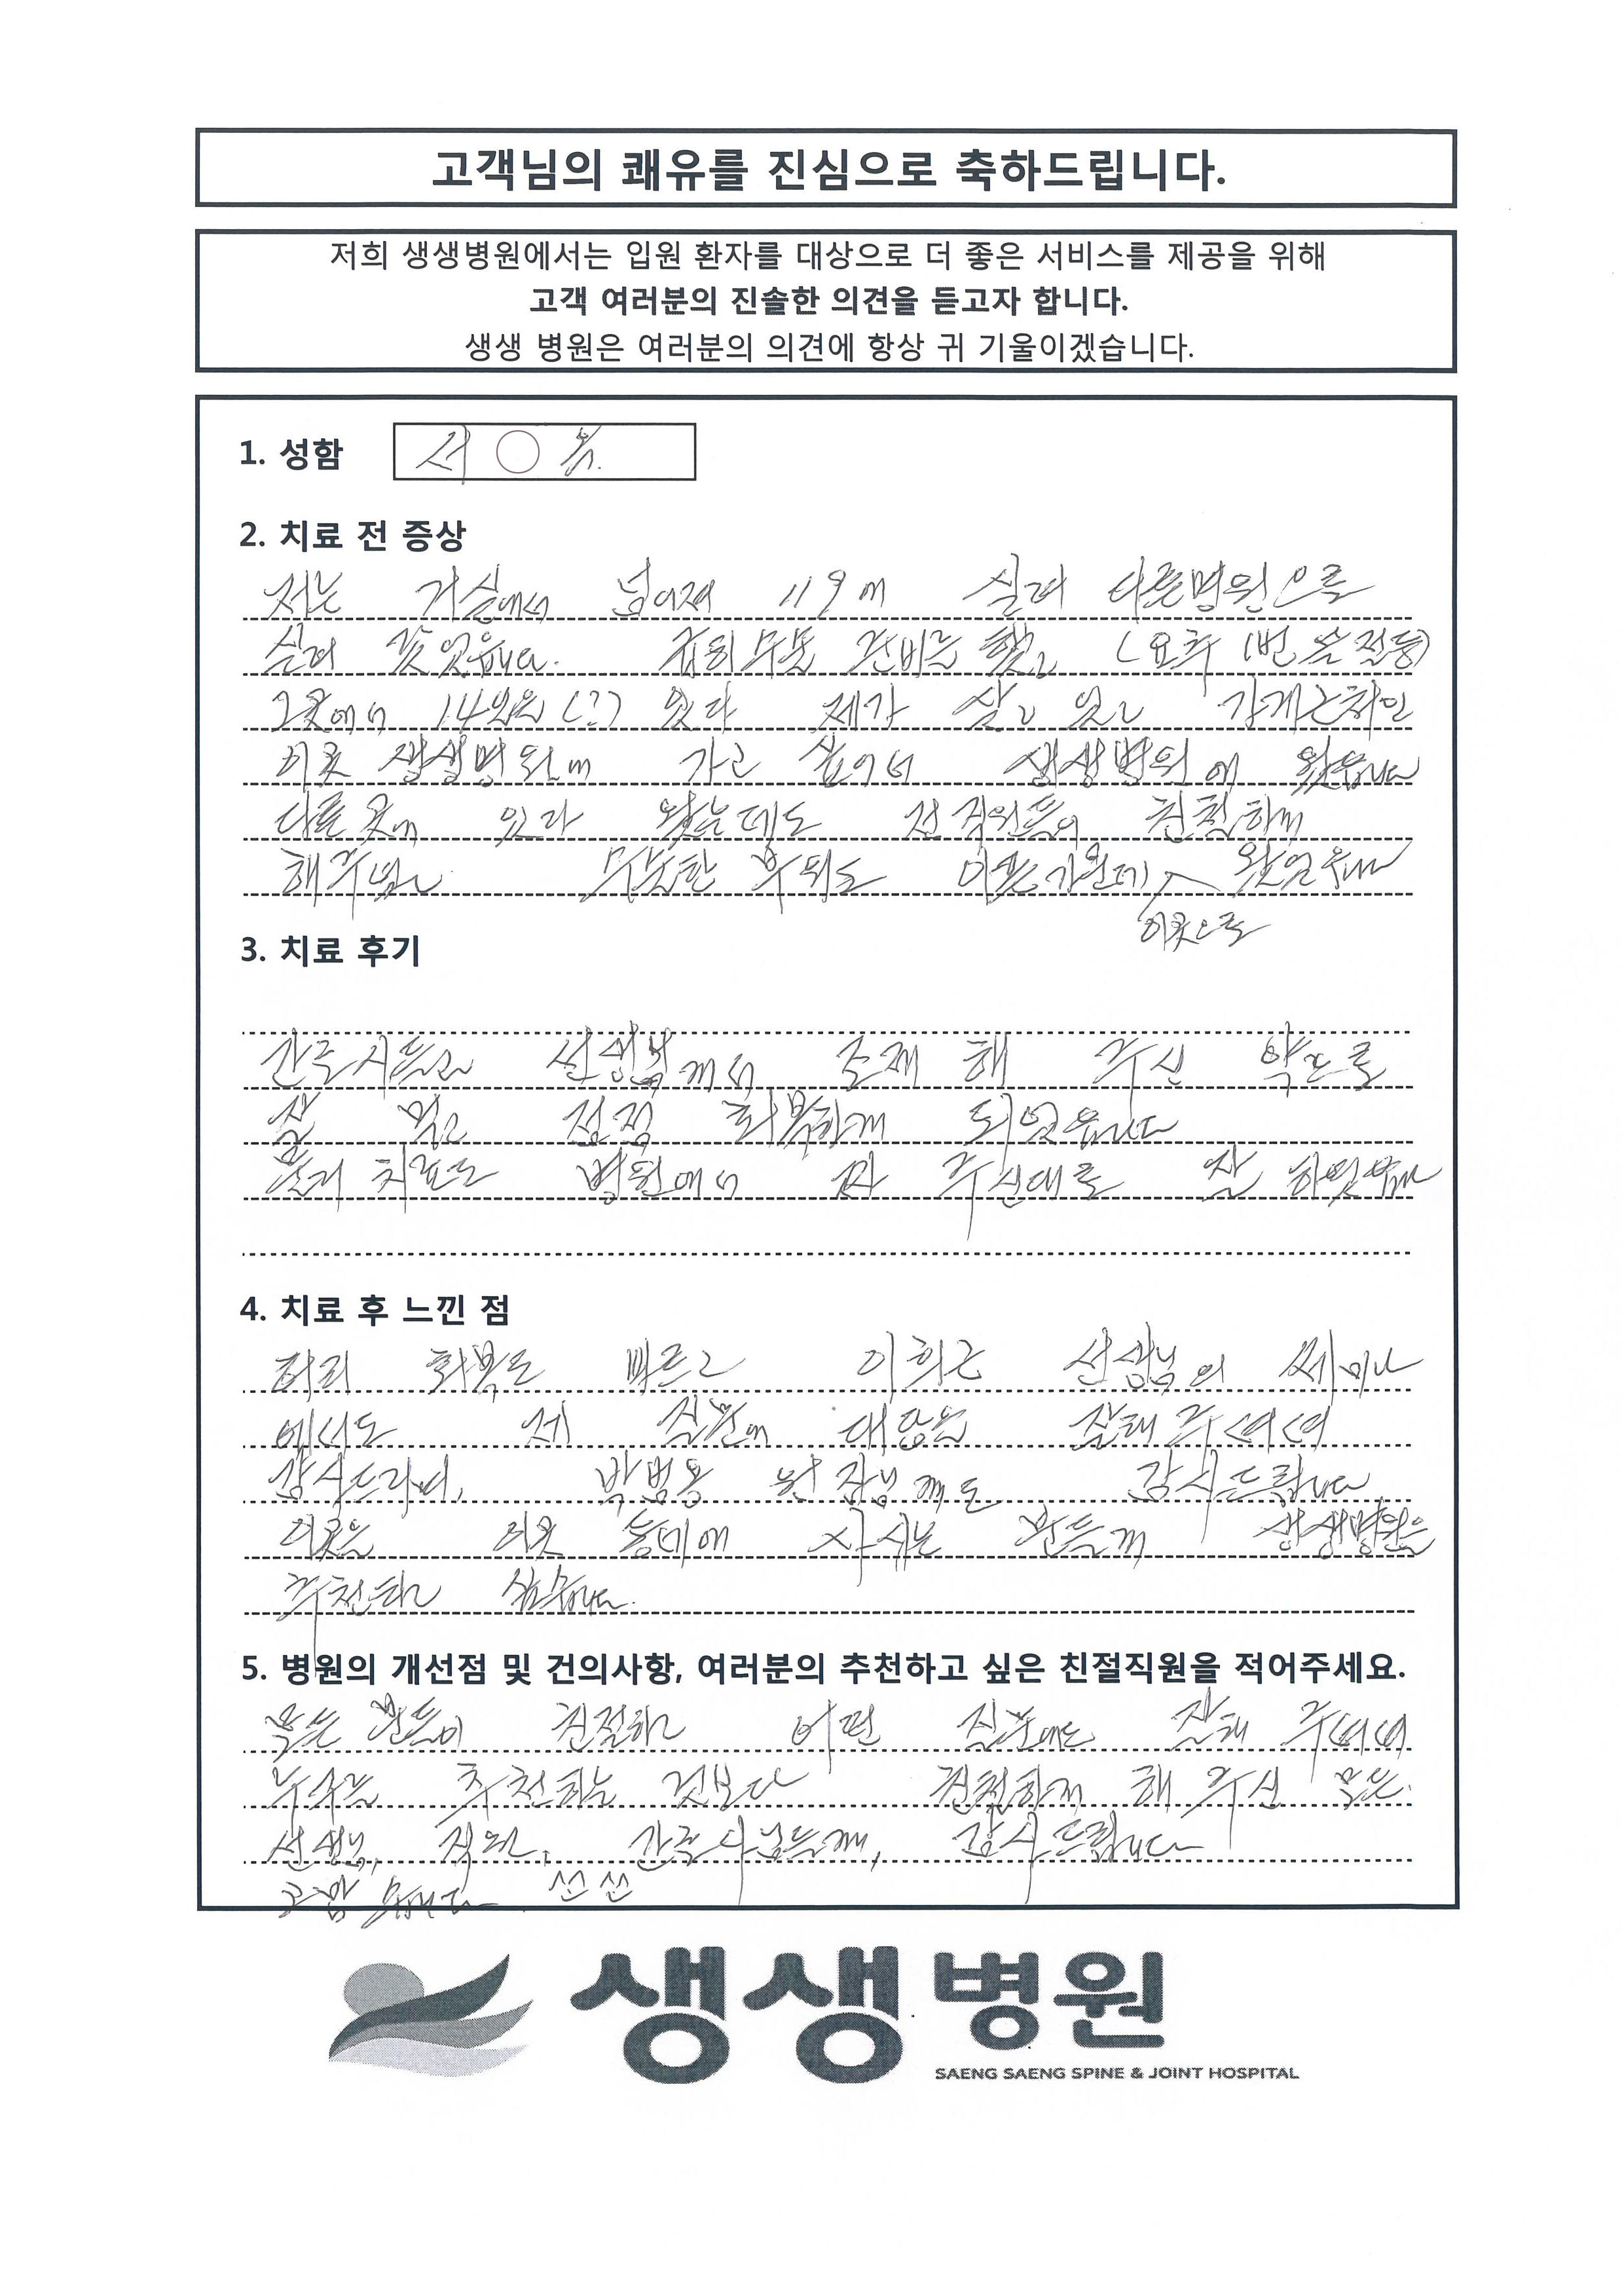 고객님의 쾌유를 진심으로 축하드립니다.
저희 생생병원에서는 입원 환자를 대상으로 더 좋은 서비스를 제공을 위해
고객 여러분의 진솔한 의견을 듣고자 합니다.
생생 병원은 여러분의 의견에 항상 귀 기울이겠습니다.
1. 성함 서 ○ 용
2. 치료 전 증상
저는 거실에서 넘어져 119에 실려 다른병원으로
실려 갖엇읍니다. (요추 1번
그곳에서 14일 (?) 있다 제가 살고 있고
이곳 생생병원에 가고 싶어서 생생병원에 왔읍니다
다른곳에 있다 왔는데도 전 직원들이 친절하게
해주님고 부위도 아픈가운데 왔었읍니다
이곳으로
3. 치료 후기
간호사들과 선생님께서 조제 해 주신 약으로
잘 먹고 점점 회복하게 되었읍니다
물리치료도 병원에서 짜 주신대로 잘 하였읍니다
4. 치료 후 느낀 점
허리 회복도 빠르고 이희근 선생님의 쎄미나
에서도 제 질문에 대답을 잘해 주셔서
감사드리며, 박범용 원장님께도 감사드립니다
이곳은 이웃 동네에 사시는 분들께 생생병원을
추천하고 싶습니다.
5. 병원의 개선점 및 건의사항, 여러분의 추천하고 싶은 친절직원을 적어주세요.
모든 분들이 친절하고 어떤 질문에도 잘해 주셔서
누구를 추천하는 것보다 친절하게 해 주신 모든
선생님, 직원, 간호사님들께, 감사드립니다
고맙습니다
생생병원
SAENG SAENG SPINE & JOINT HOSPITAL